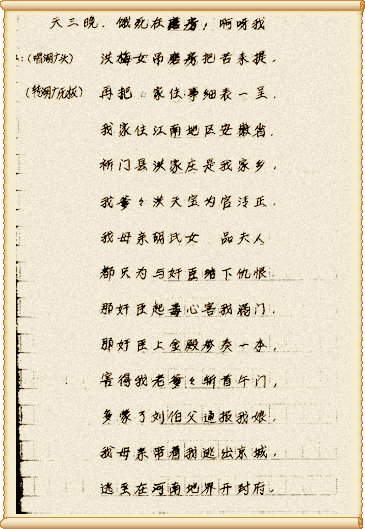 天三晚，饿死在磨房，啊呀我
（唱湖广次） 洪梅女吊磨房把苦来提，
（转湖广死板） 再把家住事细表一呈，
我家住江南地区安徽省，
祈门县洪家庄是我家乡，
我爹々洪天宝为官清正，
我母亲胡氏女品夫人
都只为与奸臣结下仇恨
那奸臣起毒心害我满门，
那奸臣上金殿参奏一本，
害得我老爹々斩首午门，
多蒙了刘伯父通报我娘，
我母亲带着我逃出京城，
逃至在河南地界开封府，